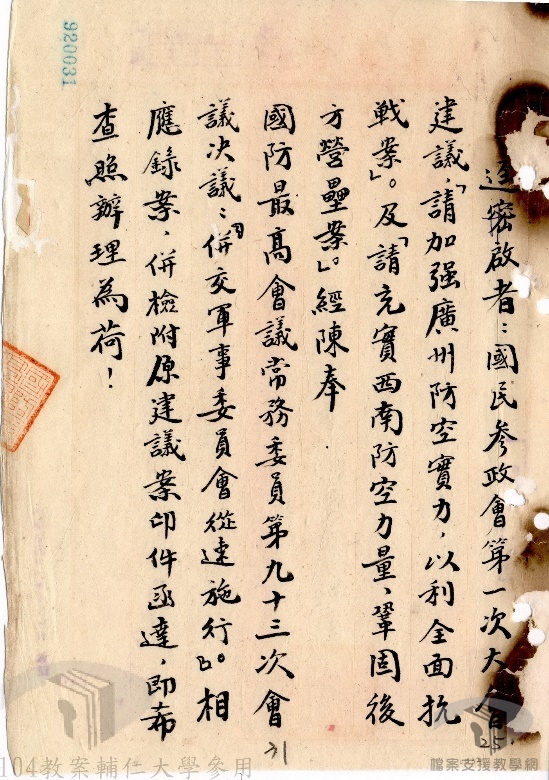 逕密啟者：國民參政會第一次大會
建議，「請加强廣州防空實力，以利全面抗
戰案」。及「請充實西南防空力量、鞏固後
方營壘案」。經陳奉
國防最高會議常務委員第九十三次會
議决議：「併交軍事委員會從速施行」。相
應錄案，併檢附原建議案印件函達，即希
查照辦理為荷！
920031
25
31
104教案輔仁大學參用
檔案支援教學網